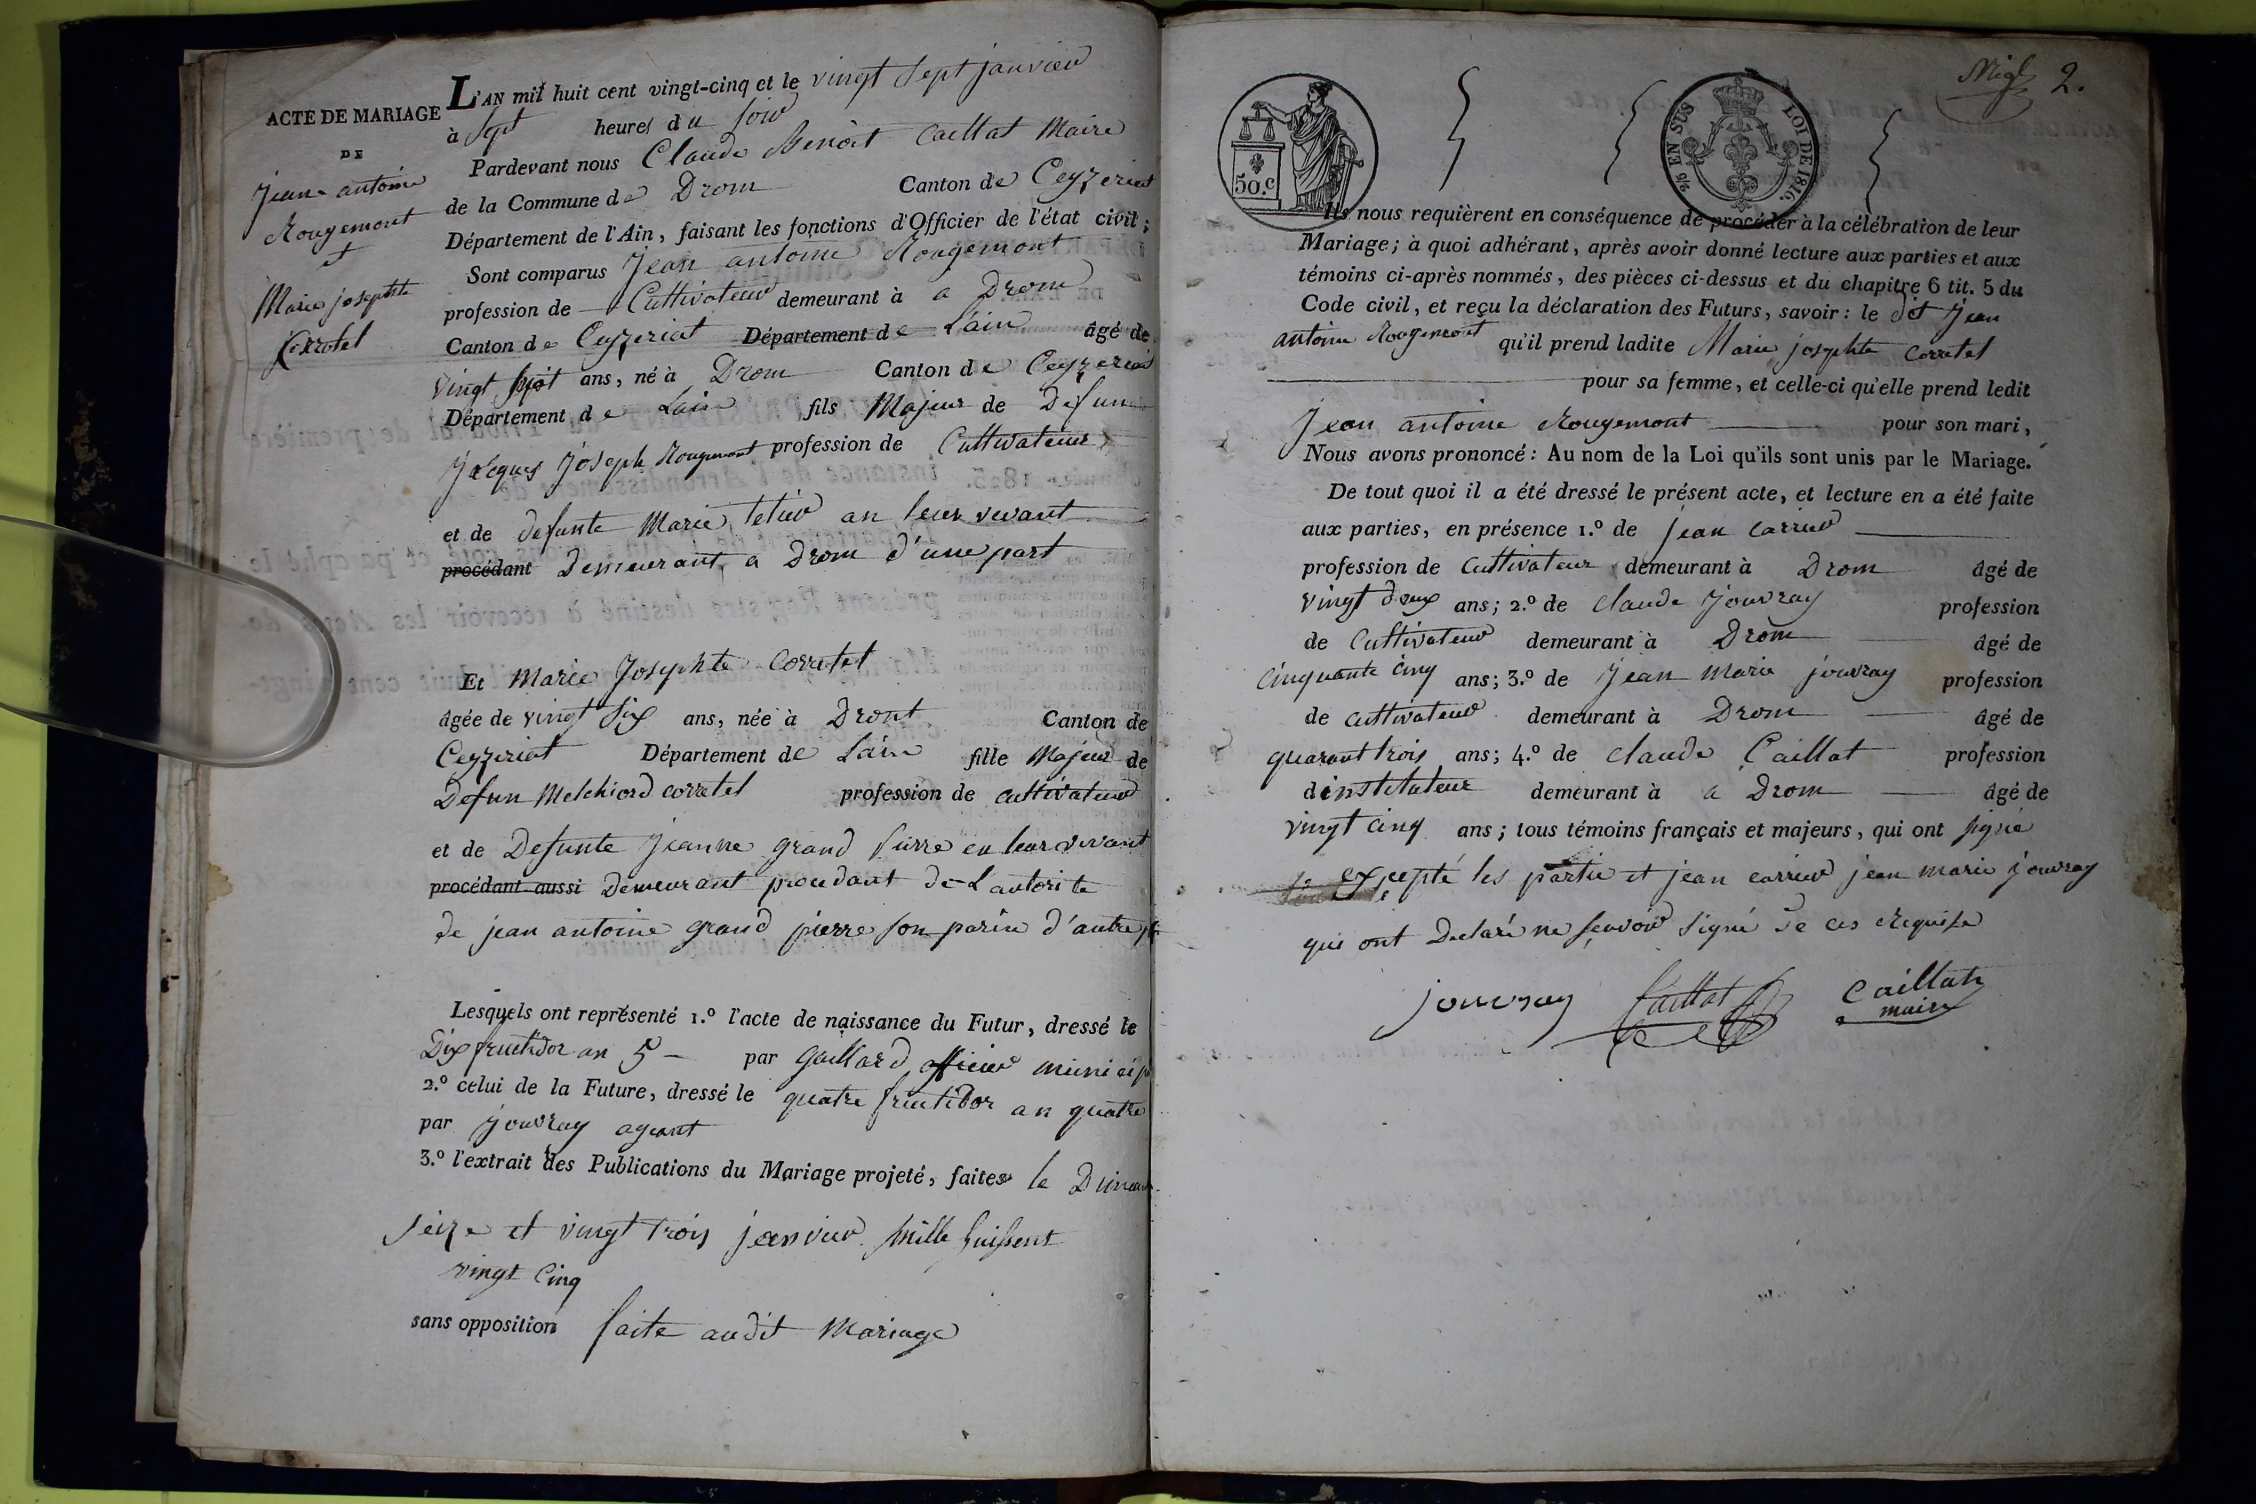 ACTE DE MARIAGE
DE
Jean antoine
Rougemont
et
Marie josephte
Corretel
L'AN mil huit cent vingt-cinq et le vingt sept janvier
à sept heures du soir
Pardevant nous Claude Benoit Caillat Maire
de la Commune de Drom Canton de Ceyzeriat
Département de l'Ain, faisant les fonctions d'Officier de l'état civil;
Sont comparus Jean antoine Rougemont
profession de Cultivateur demeurant à a Drom
Canton de Ceyzeriat Département de Lain âgé de
vingt sept ans, né à Drom Canton de Ceyzeriat
Département de Lain fils Majeur de Defun
Jacques Joseph Rougemont profession de Cultivateur
et de defunte Marie an leur vivant
procédant Demeurant a Drom d'une part
Et Marie Josephte Corretel
âgée de vingt six ans, née à Drom Canton de
Ceyzeriat Département de Lain fille Majeur de
Defun Melchiord corretel profession de cultivateur
et de Defunte Jeanne grand pierre en leur vivant
procédant aussi Demeurant procedant de L'autorite
de jean antoine grand pierre son parin d'autre pt
Lesquels ont représenté 1.º l'acte de naissance du Futur, dressé le
Dix fructidor an 5 par Gaillard officier municip
2.º celui de la Future, dressé le quatre fructidor an quatre
par jouvray agant
3.º l'extrait des Publications du Mariage projeté, faites le Diman
seize et vingt trois janvier mille huissent
vingt Cinq
sans opposition faite audit Mariage
2.
50.c
2/5 EN SUS LOI DE 1816.
Ils nous requièrent en conséquence de procéder à la célébration de leur
Mariage; à quoi adhérant, après avoir donné lecture aux parties et aux
témoins ci-après nommés, des pièces ci-dessus et du chapitre 6 tit. 5 du
Code civil, et reçu la déclaration des Futurs, savoir: le dit Jean
antoine Rougemont qu'il prend ladite Marie josephte Corretel
pour sa femme, et celle-ci qu'elle prend ledit
Jean antoine Rougemont pour son mari,
Nous avons prononcé: Au nom de la Loi qu'ils sont unis par le Mariage.
De tout quoi il a été dressé le présent acte, et lecture en a été faite
aux parties, en présence 1.º de jean Carrier
profession de Cultivateur demeurant à Drom âgé de
vingt deux ans; 2.º de claude jouvray profession
de Cultivateur demeurant à Drom âgé de
cinquante cinq ans; 3.º de Jean Marie jouvray profession
de cultivateur demeurant à Drom âgé de
quarant trois ans; 4.º de claude Caillat profession
dinstituteur demeurant à a Drom âgé de
vingt cinq ans; tous témoins français et majeurs, qui ont signé
Excepté les partie et jean carrier jean marie jouvray
qui ont Declaré ne savoir signé de ces Requise
jouvray Caillat Caillat
maire